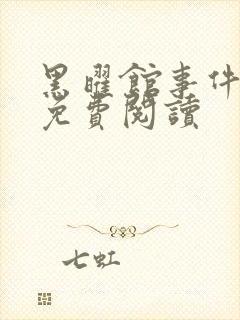 黑曜館事件
免費閱讀
七虹